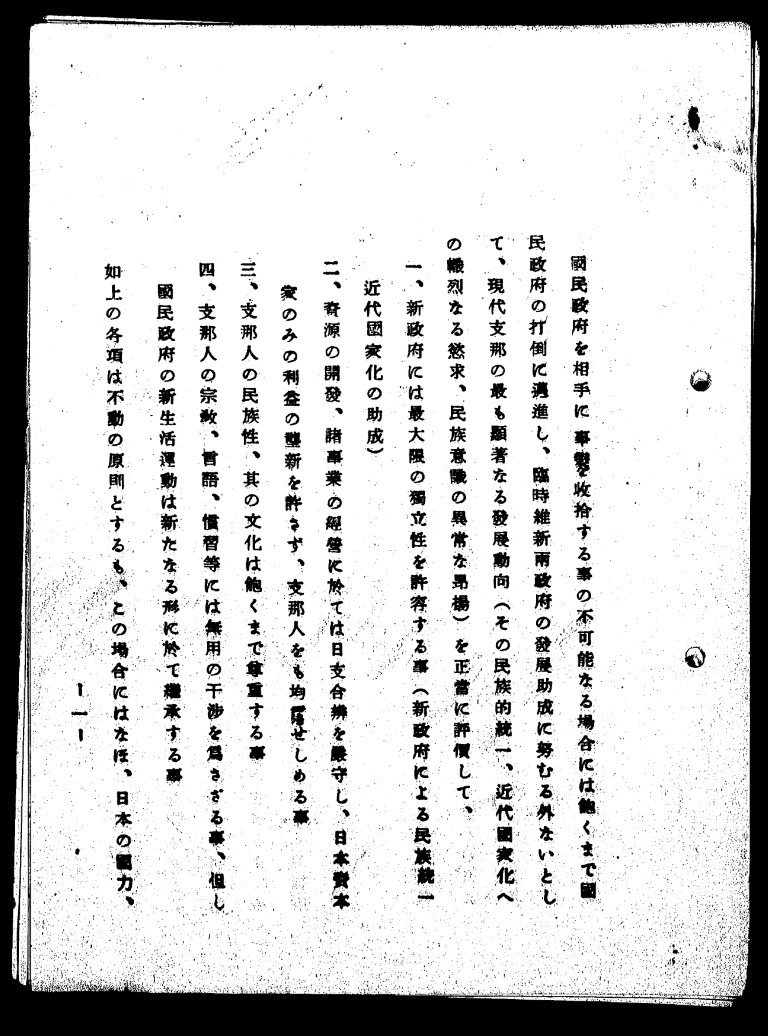 國民政府を相手に事變を收拾する事の不可能なる場合には飽くまで國
民政府の打倒に邁進し、臨時維新兩政府の發展助成に努むる外ないとし
て、現代支那の最も顯著なる發展動向(その民族的統一、近代國家化へ
の熾烈なる慾求、民族意識の異常な昂揚)を正當に評價して、
一、新政府には最大限の獨立性を許容する事(新政府による民族統一
近代國家化の助成)
二、資源の開發、諸事業の經營に於ては日支合辨を嚴守し、日本資本
家のみの利益の壟斷を許さず、支那人をも均霑せしめる事
三、支那人の民族性、其の文化は飽くまで尊重する事
四、支那人の宗敎、言語、慣習等には無用の干渉を爲さざる事、但し
國民政府の新生活運動は新たなる形に於て繼承する事
如上の各項は不動の原則とするも、この場合にはなほ、日本の國力、
— 一 —